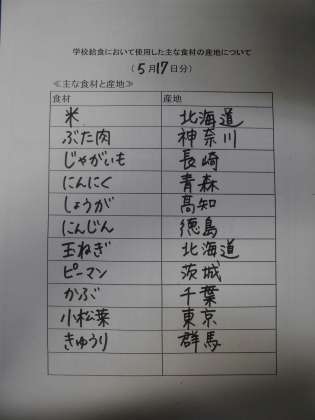 学校給食において使用した主な食材の産地について
(5月17日分)
≪主な食材と産地≫
食材 産地
米 北海道
ぶた肉 神奈川
じゃがいも 長崎
にんにく 青森
しょうが 高知
にんじん 徳島
玉ねぎ 北海道
ピーマン 茨城
かぶ 千葉
小松葉 東京
きゅうり 群馬